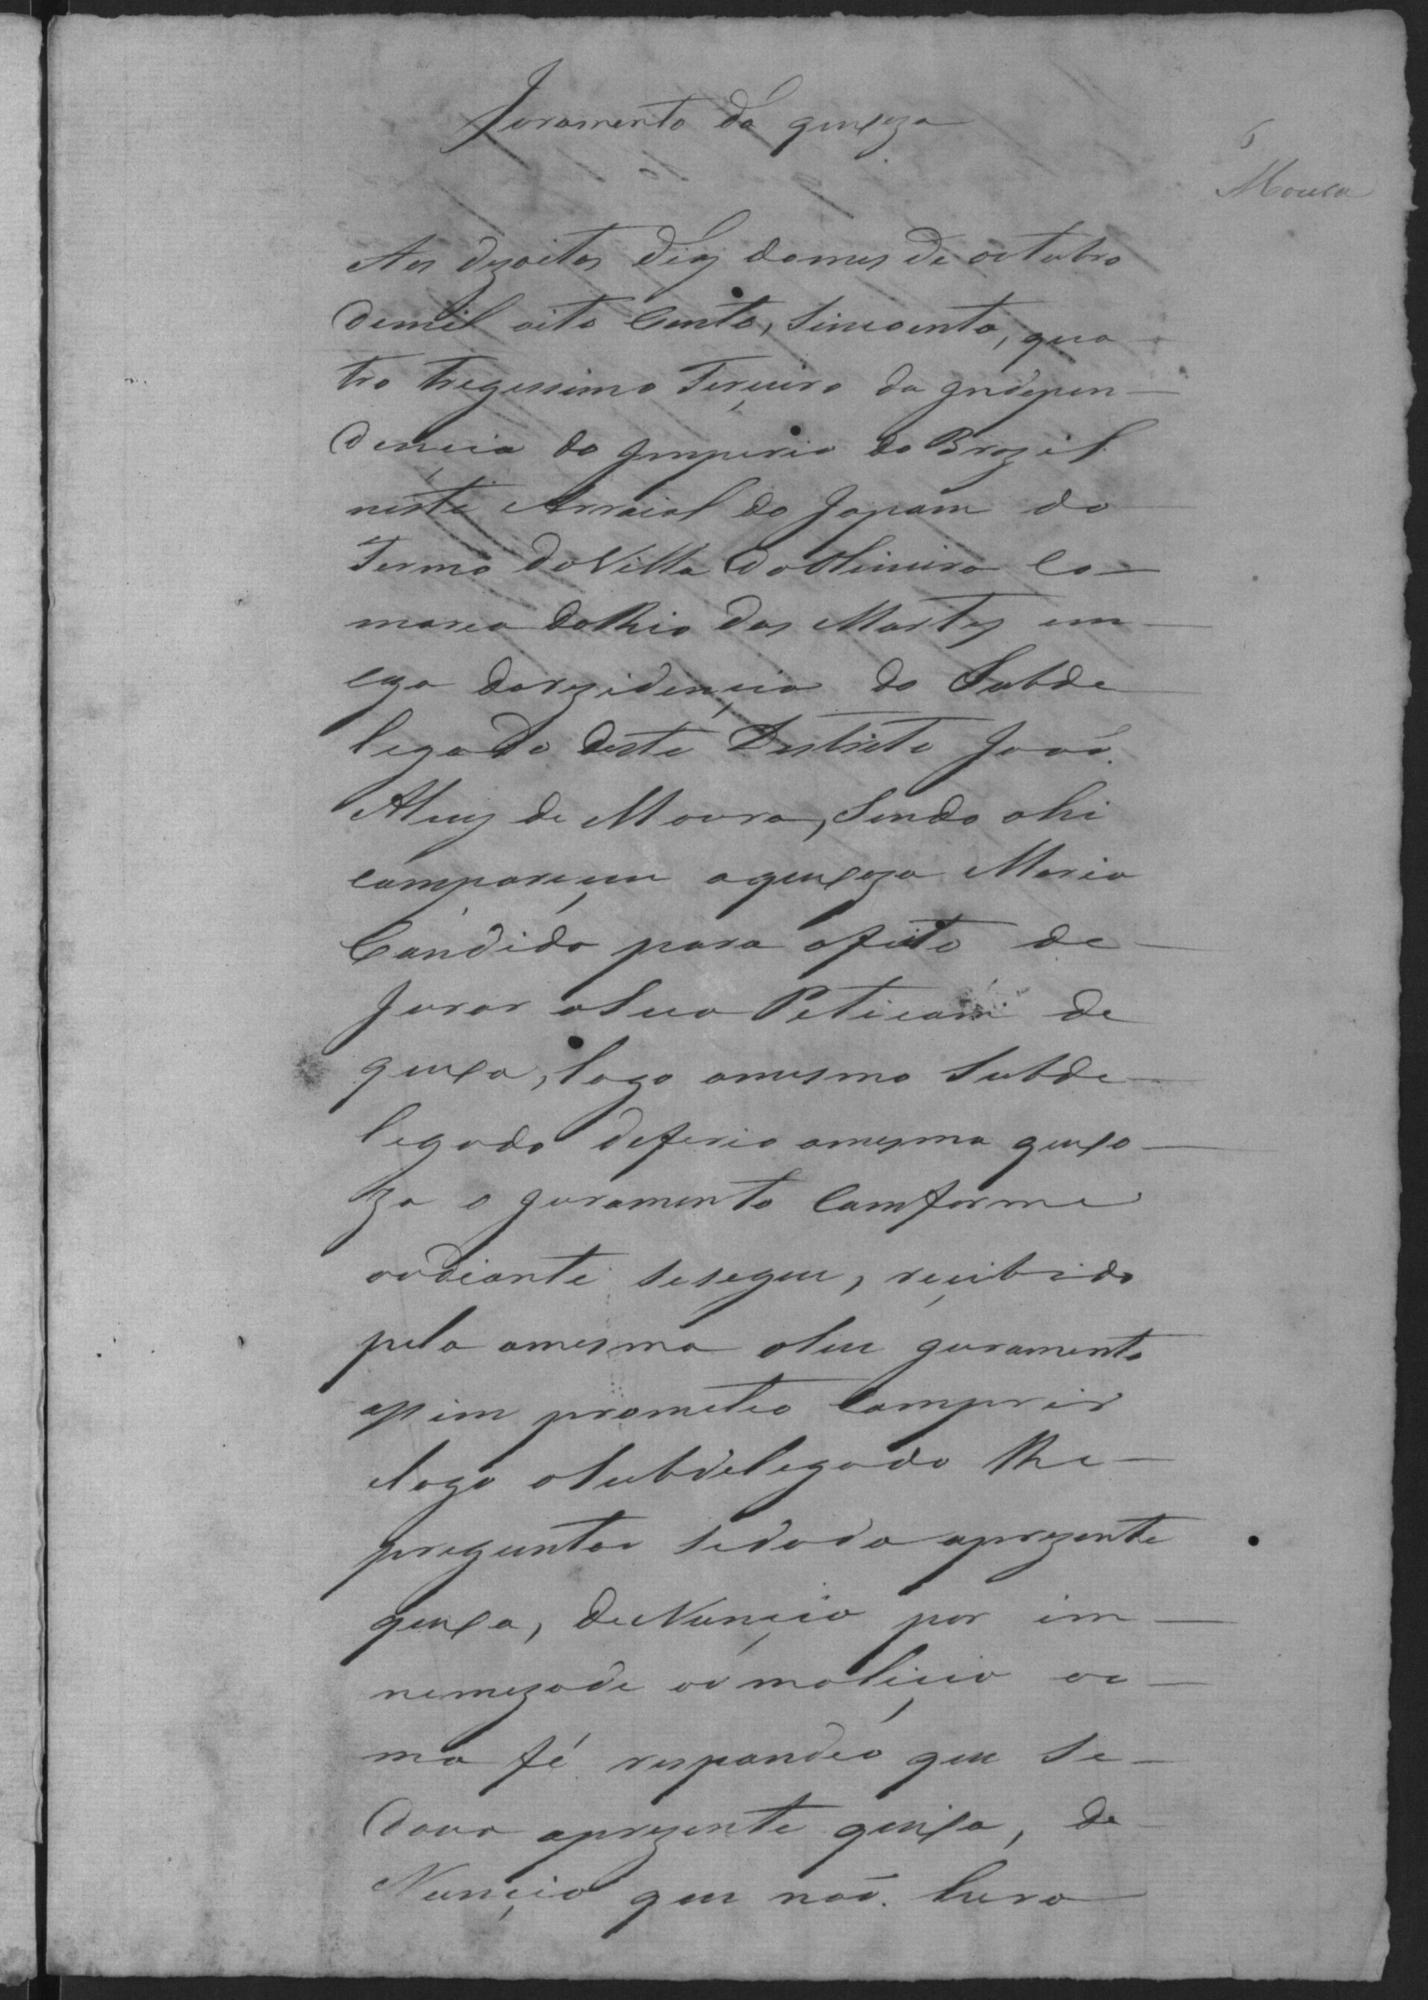 Juramento dá queixza
6
Moura
Aos dezoitos diaz domes de outubro
demil oito Centos, Sincoenta, qua
tro tregessimo Terceiro da Indepen
dencia do Imperio do Brazil
neste Arraial do Japam do
Termo da Villa da Oliveira Co
marca do Rio das Mortes em
caza da rezidençia do Subde
legado deste Destrito Joaó
Alvez de Moura, Sendo ahi
compareçeu a queixoza Maria
Candida para afeito de
Jurar a Sua Peticam de
queixa, logo omesmo Subde
legado deferio amesma queixo
za o juramento Comforme
aodiante sesegue, reçibido
pela amesma oseu juramento
assim prometeo Comprir
elogo o Subdelegado lhe
preguntou Sedava aprezente
queixa, deNunçia por im
nemezade oú maliçia ou
ma fé respondeó que Se
dava aprezente queixa, de
Nunçia que naó. hera